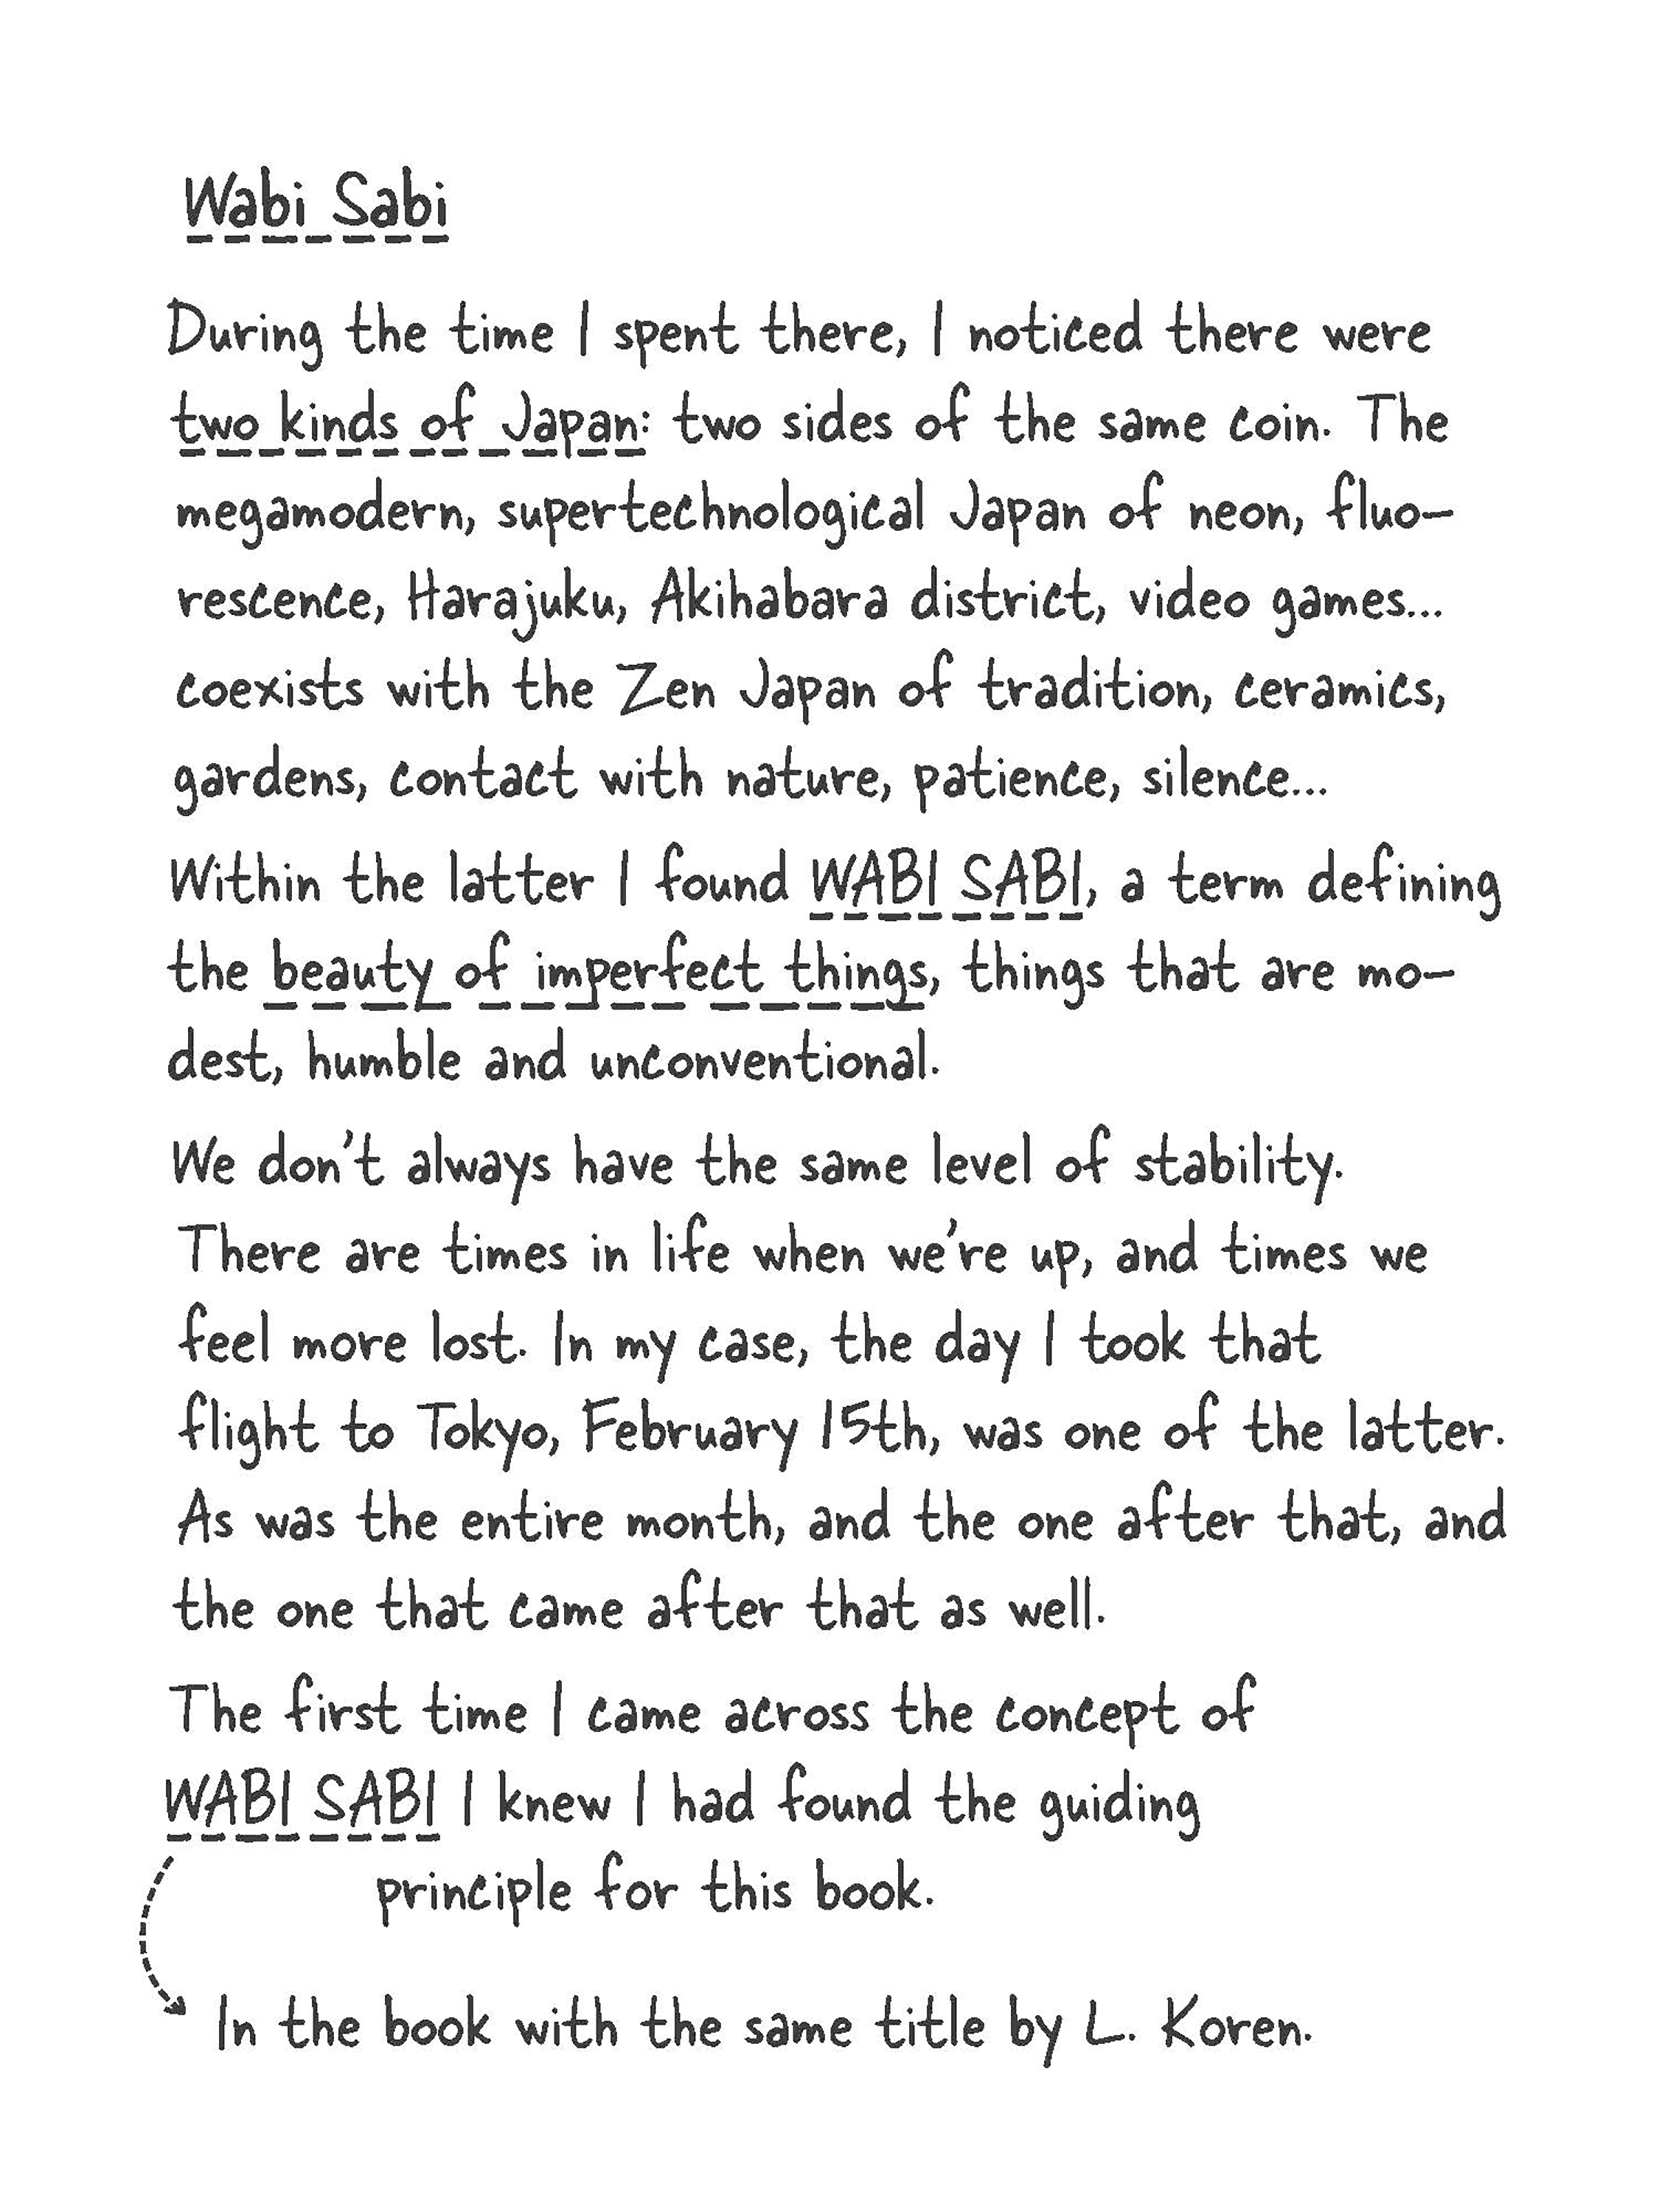 Wabi Sabi
During the time I spent there, I noticed there were
two kinds of Japan: two sides of the same coin. The
megamodern, supertechnological Japan of neon, fluo-
rescence, Harajuku, Akihabara district, video games...
coexists with the Zen Japan of tradition, ceramics,
gardens, contact with nature, patience, silence...
Within the latter I found WABI SABI, a term defining
the beauty of imperfect things, things that are mo-
dest, humble and unconventional.
We don't always have the same level of stability.
There are times in life when we're up, and times we
feel more lost. In my case, the day I took that
flight to Tokyo, February 15th, was one of the latter.
As was the entire month, and the one after that, and
the one that came after that as well.
The first time I came across the concept of
WABI SABI I knew I had found the guiding
principle for this book.
In the book with the same title by L. Koren.